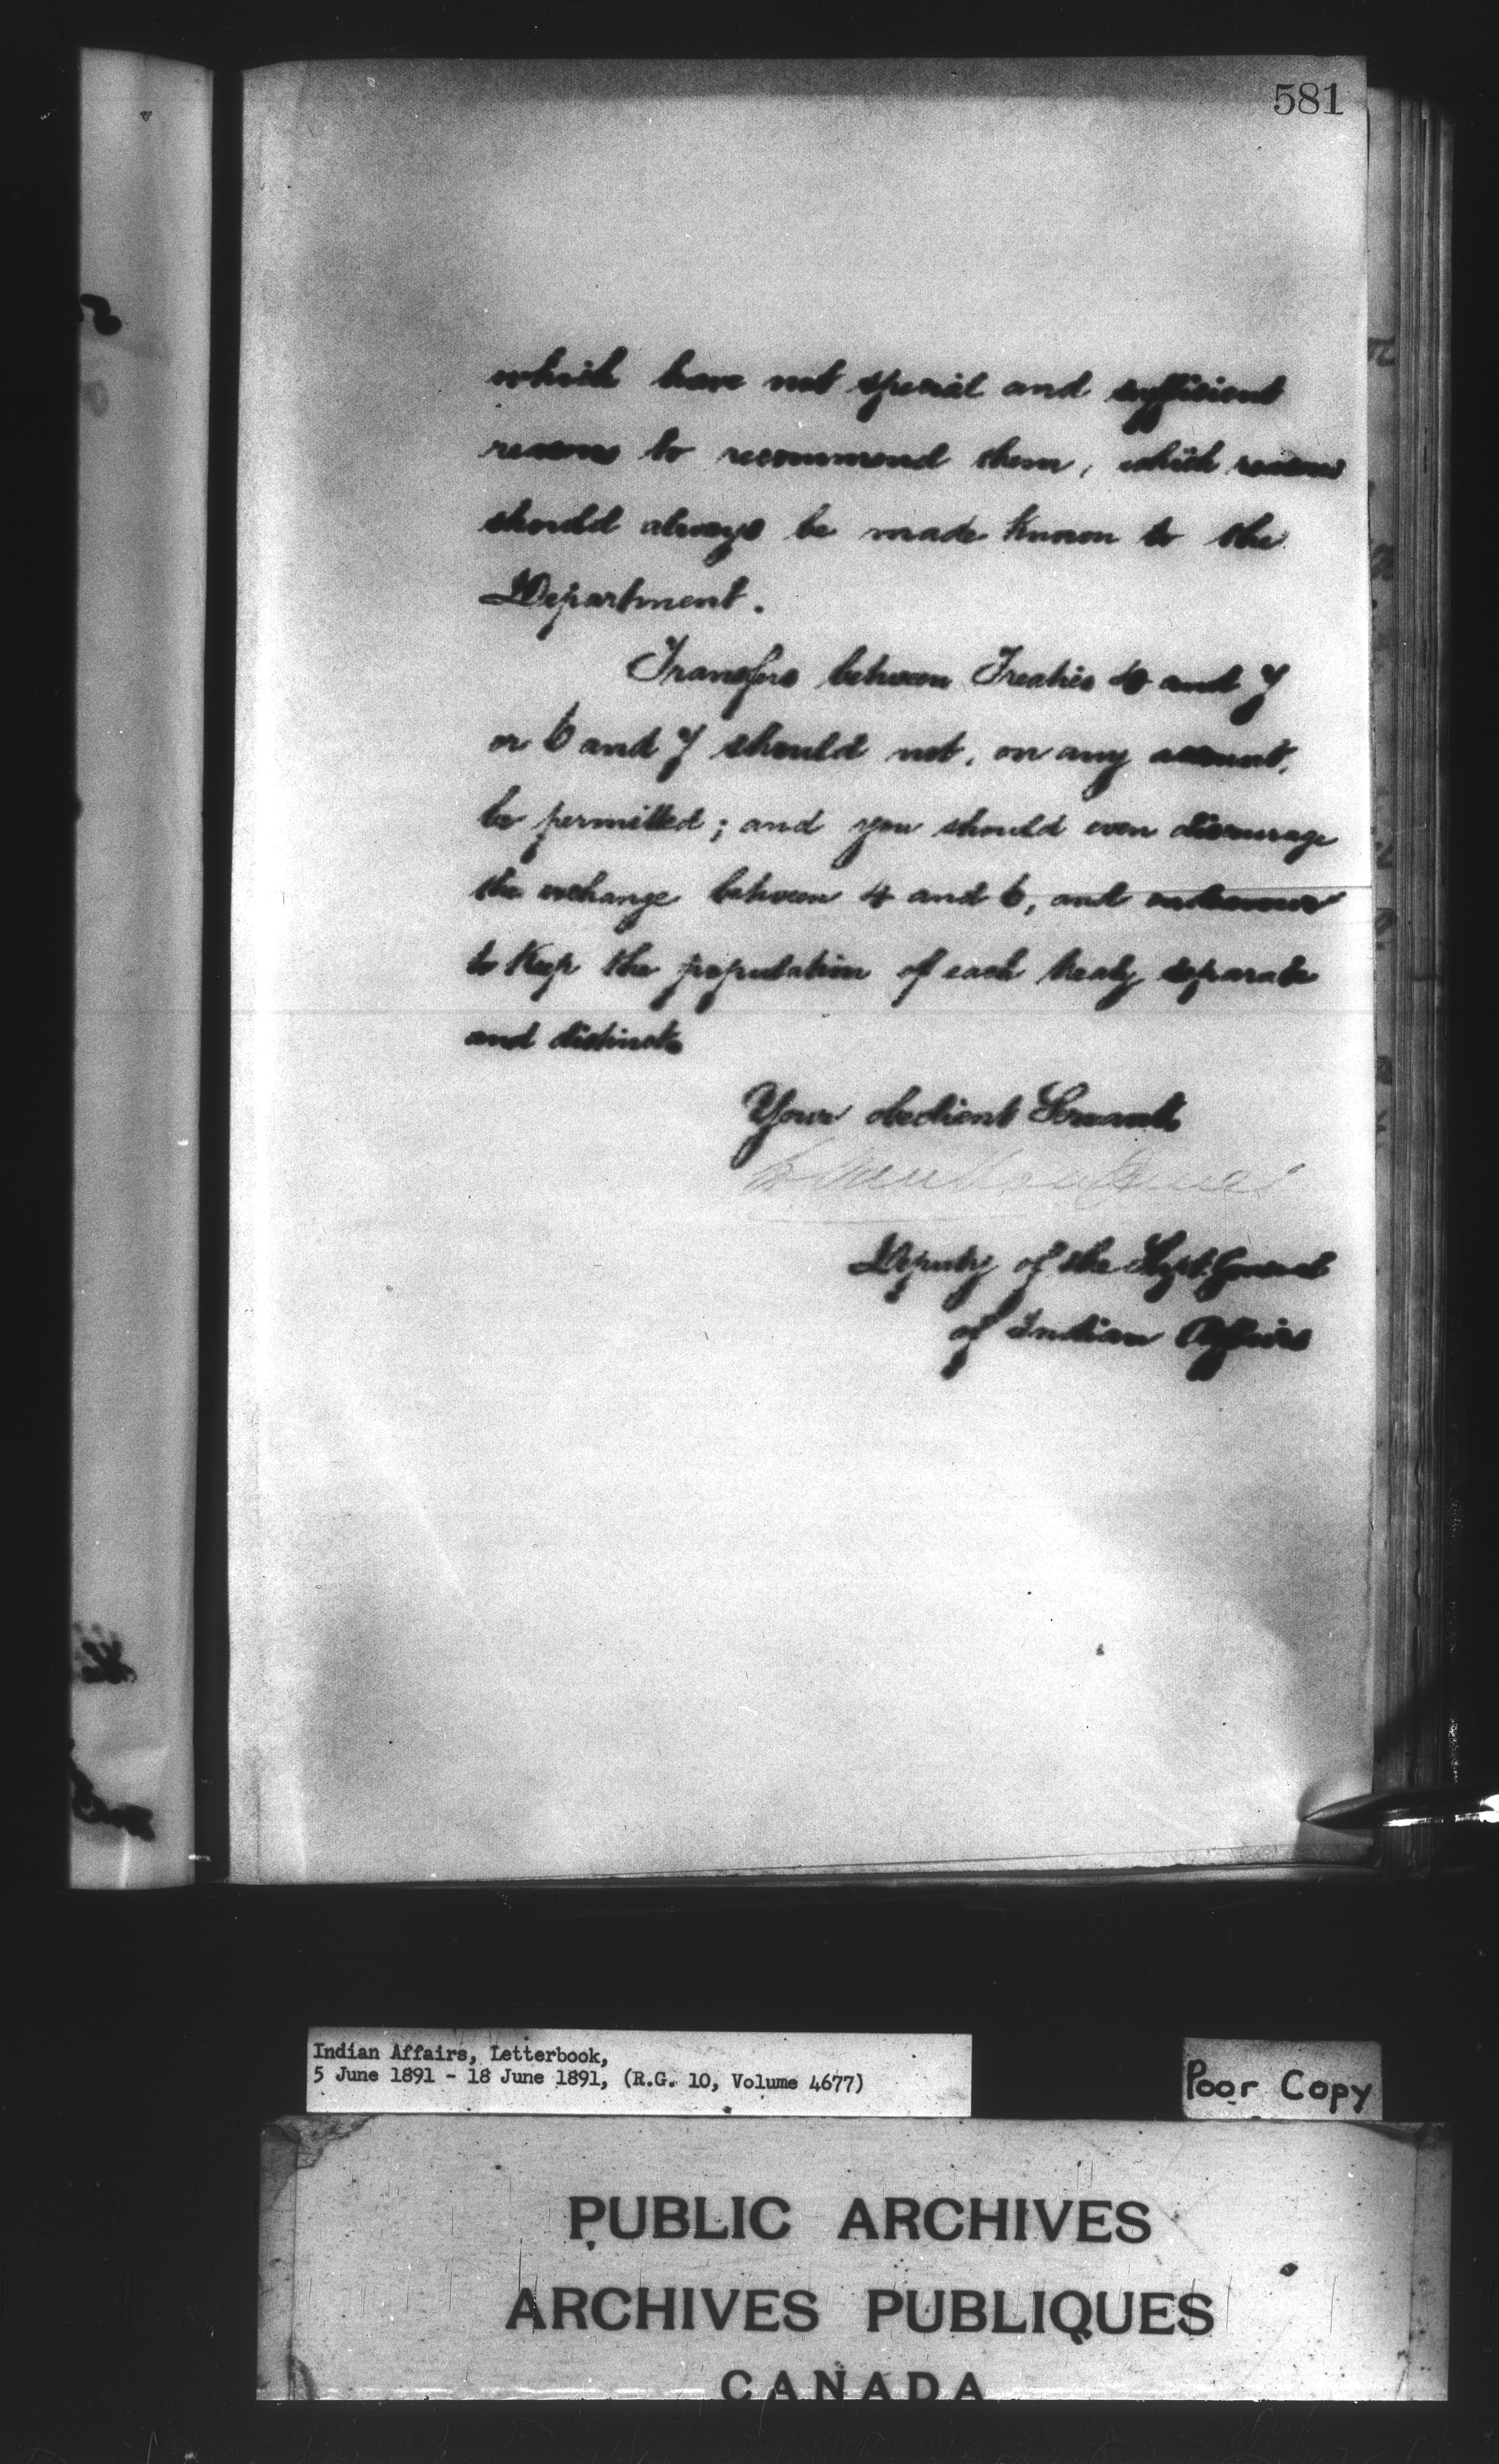 581
which have not special and sufficient
reasons to recommend them, which reasons
should always be made known to the
Department.
Transfers between Treaties 4 and 7
or 6 and 7 should not, on any account,
be permitted; and you should even discourage
the exchange between 4 and 6, and endeavour
to keep the population of each treaty separate
and distinct.
Your obedient Servant
L Vankoughnet
Deputy of the Supt. General
of Indian Affairs
Indian Affairs, Letterbook,
5 June 1891 - 18 June 1891, (R.G. 10, Volume 4677)
Poor Copy
PUBLIC ARCHIVES
ARCHIVES PUBLIQUES
CANADA